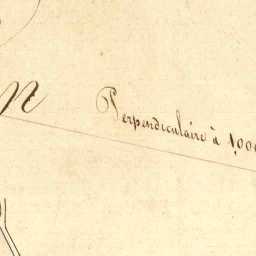 n
Perpendiculaire à 1,000